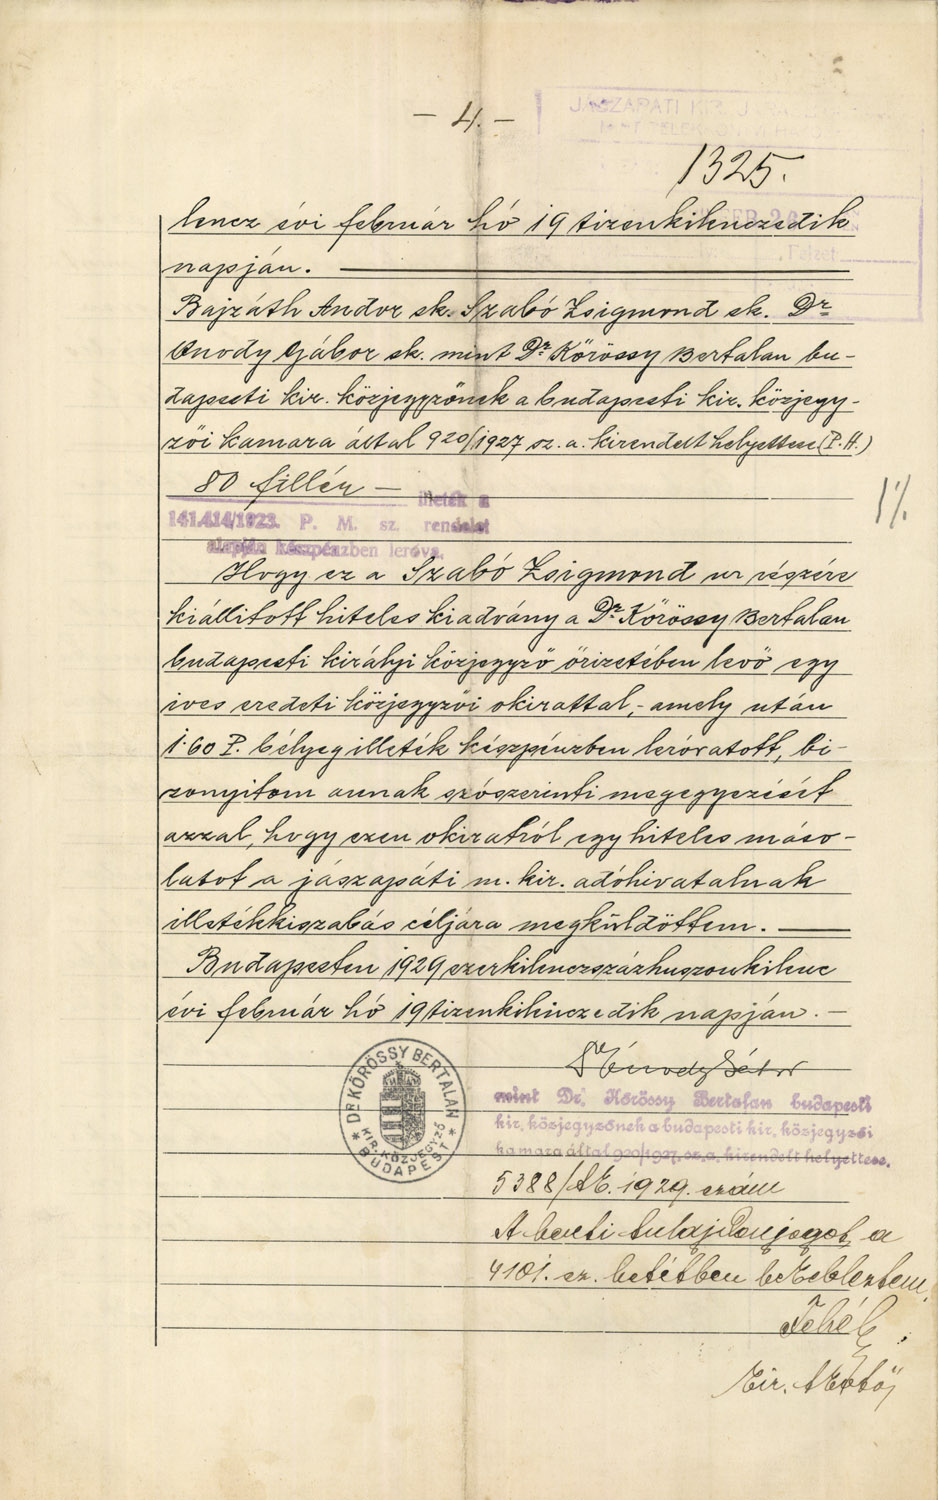 – 4. –
JÁSZAPÁTI KIR. J
1325.
lencz évi február hó 19 tizenkilenczedik
napján.
Bajráth Andor sk. Szabó Zsigmond sk. Dr
Gábor sk. mint Dr. Kőrössy Bertalan bu-
dapesti kir. közjegyzőnek a budapesti kir. közjegy-
zői kamara által 920/1927 sz. a. kirendelt helyettese (P.H.)
80 fillér – illeték a
141.414/1923. P. M. sz. rendelet
alapján készpénzben leróva.
Hogy ez a Szabó Zsigmond ur részére
kiállitott hiteles kiadvány a Dr. Kőrössy Bertalan
budapesti királyi közjegyző őrizetében levő egy
ives eredeti közjegyzői okirattal, - amely után
1·60 P. bélyegilleték készpénzben leróvatott, bi-
zonyitom annak szószerinti megegyezését
azzal, hogy ezen okiratról egy hiteles máso-
latot a jászapáti m. kir. adóhivatalnak
illetékkiszabás céljára megküldöttem.
Budapesten 1929 ezerkilenczszázhuszonkilenc
évi február hó 19 tizenkilenczedik napján. –
DR KŐRÖSSY BERTALAN
KIR. KÖZJEGYZŐ
* BUDAPEST *
mint Dr. Kőrössy Bertalan budapesti
kir. közjegyzőnek a budapesti kir. közjegyzői
kamara által 920/1927. sz. a. kirendelt helyettese.
5388/tk. 1929. szám
A benti tulajdonjogot a
4101. sz. betétben bekebleztem.
kir.